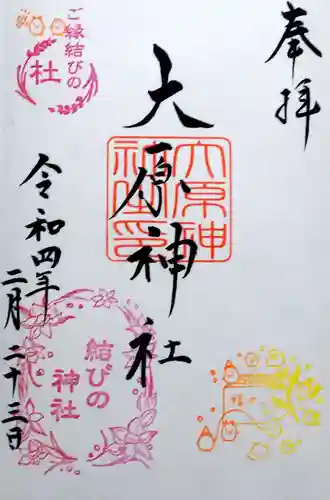 奉拝
大原神社
令和四年
二月二十三日
ご縁結びの
社
結びの
神社